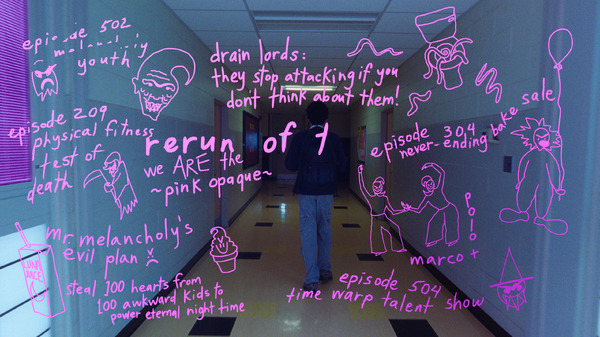 episode 502
youth
drain lords:
they stop attacking if you
don't think about them!
episode 209
physical fitness
test of
death
rerun of
we ARE the
~pink opaque~
episode 304
never-ending bake sale
marco +
POLO
mr. melancholy's
evil plan
steal 100 hearts from
100 awkward kids to
power eternal night time
LUNA
JUICE
episode 504
time warp talent show